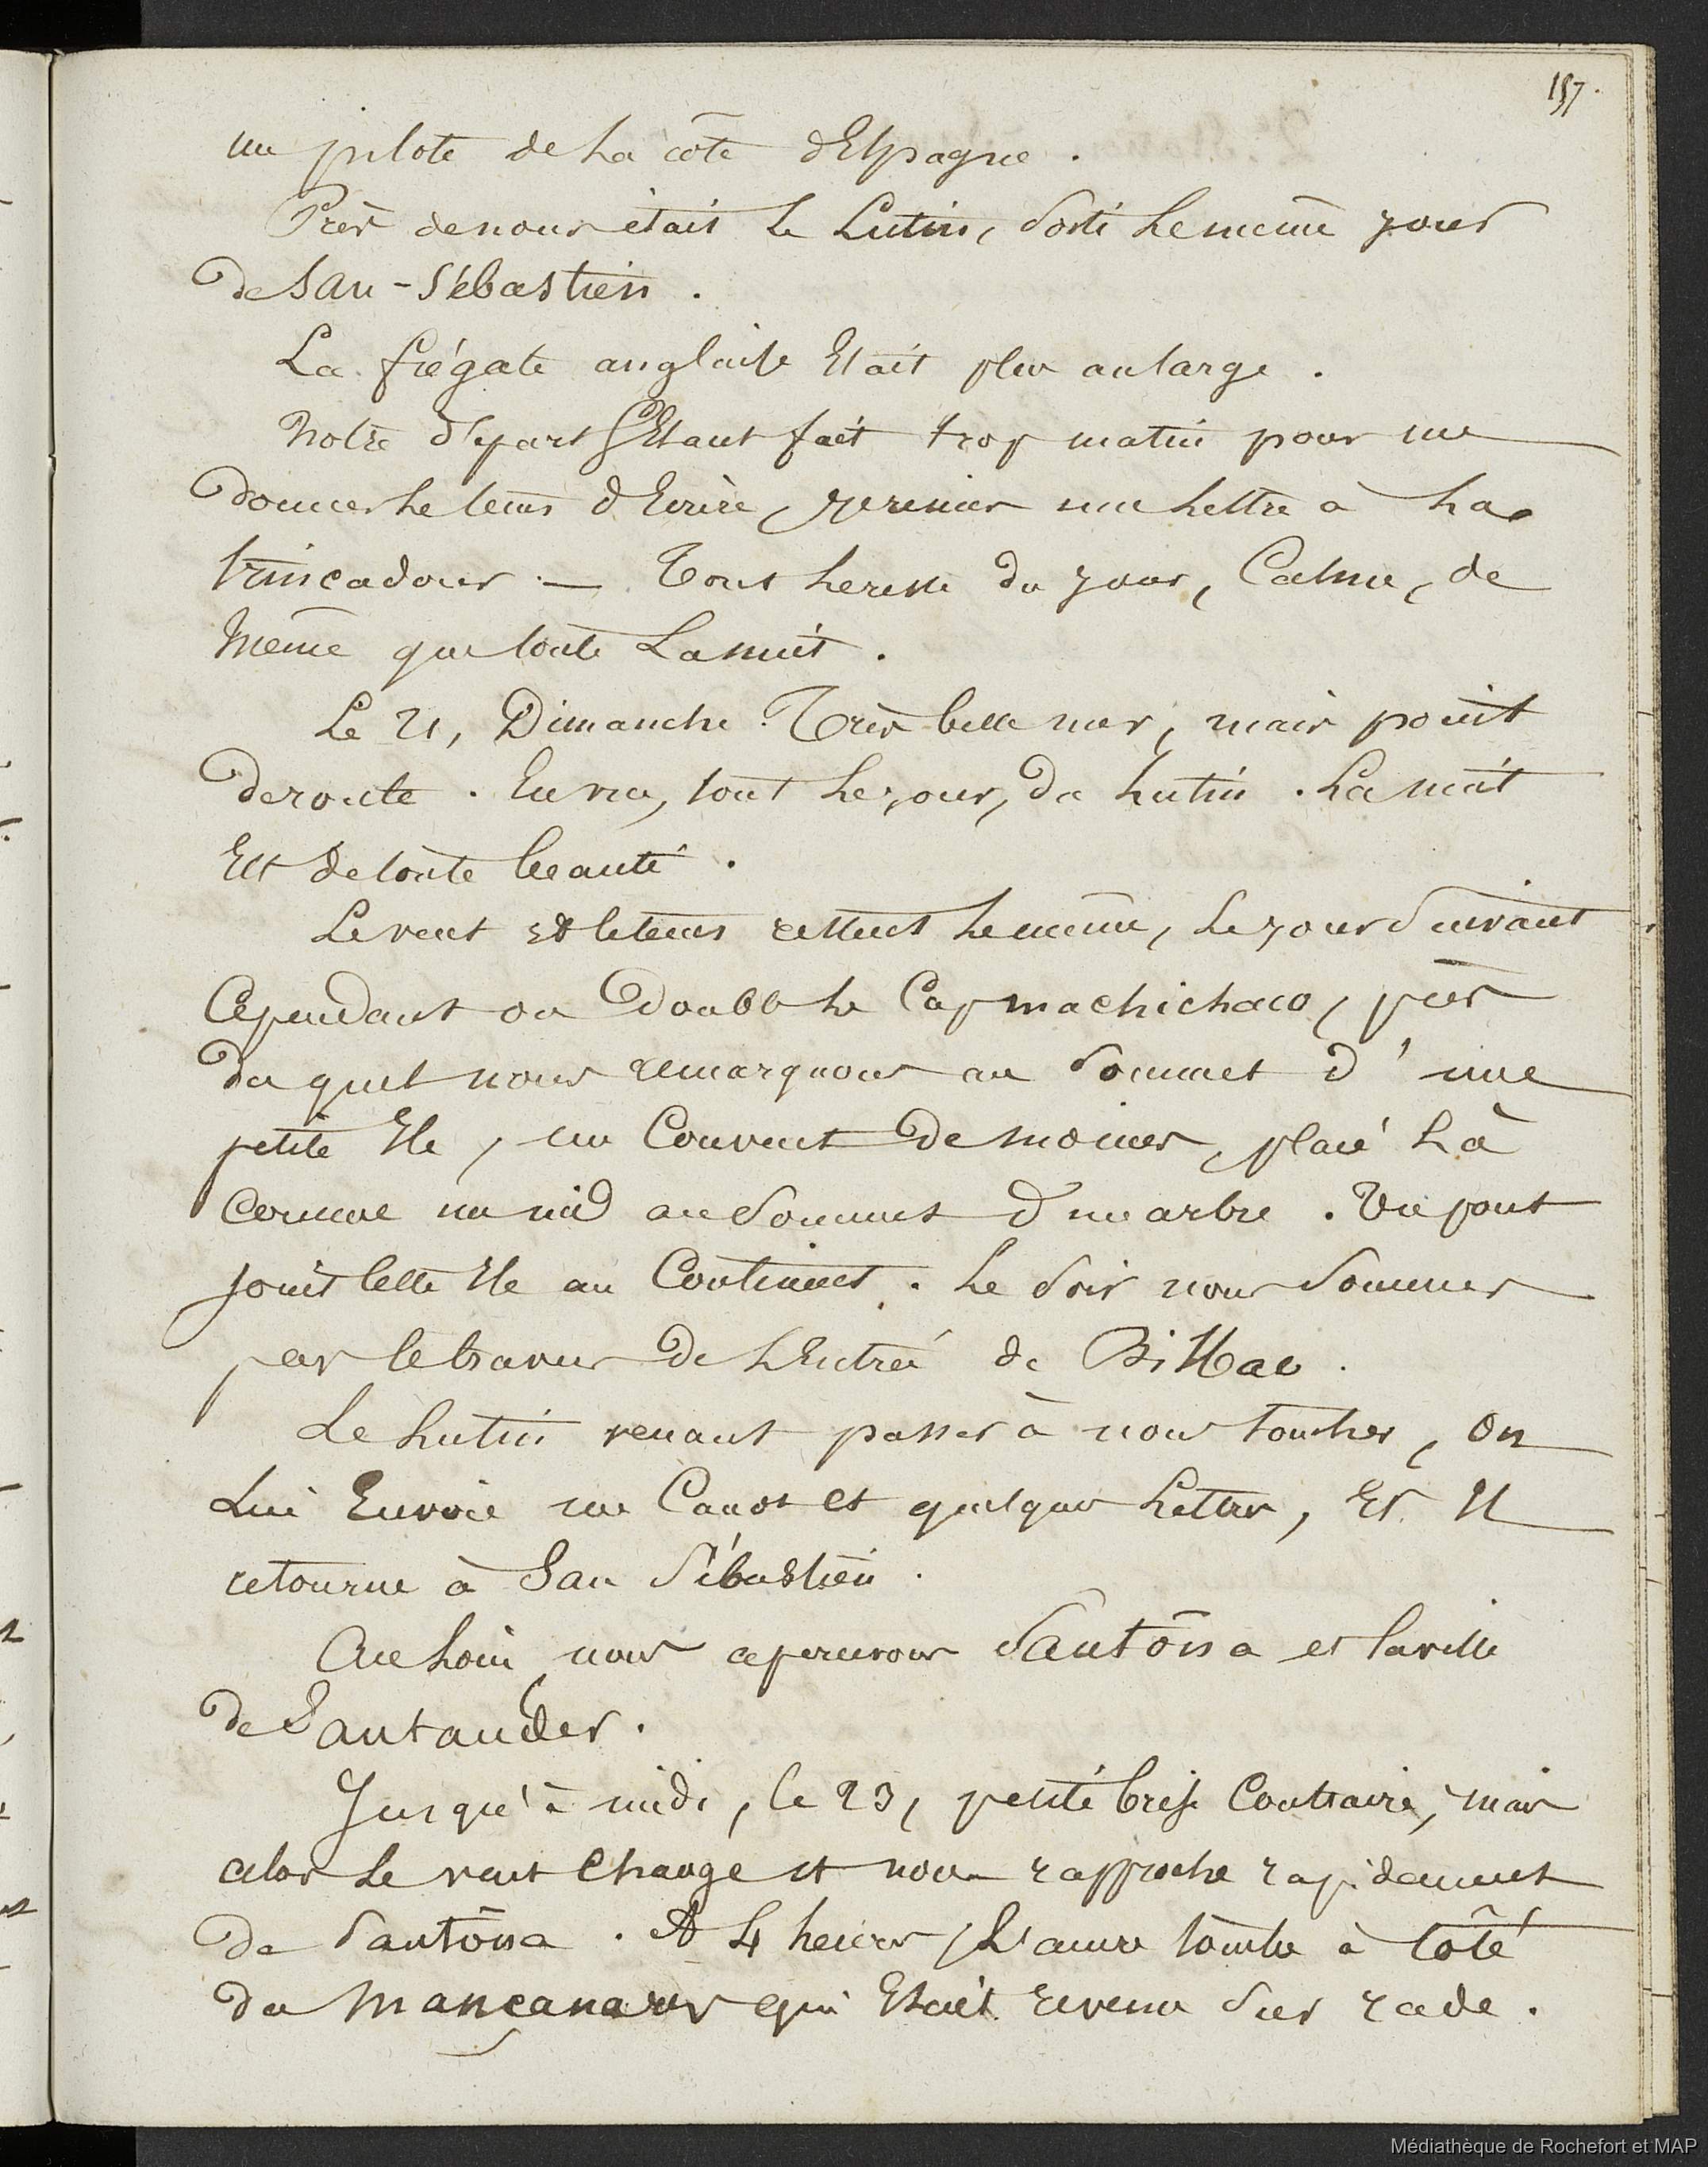 157.
un pilote de la côte d'Espagne.
Près de nous était le Lutin, sorti le même jour
de San-Sébastien.
La frégate anglaise Etait plus au large.
Notre départ S'Etant fait trop matin pour me
donner le tems d'Ecrire, je remis une lettre à la
trincadour. — Tout le reste du jour, Calme, de
même que toute La nuit.
Le 21, Dimanche. Très belle mer, mais point
de route. En vue, tout le jour, du Lutin. La nuit
Est de toute beauté.
Le vent et le tems restent le même, le jour suivant
Cependant on double le Cap machichaco, près
duquel nous remarquons au sommet d'une
petite Ile, un Couvent de moines, placé Là
comme un nid au sommet d'un arbre. Un pont
joint cette Ile au Continent. Le soir nous sommes
par le travers de L'Entrée de Bilbao.
Le Lutin venant passer à nous toucher, on
Lui Envoie un Canot et quelques Lettres, Et Il
retourne à San Sébastien.
Au Loin nous apercevons Santôna et la ville
de Santander.
Jusqu'à midi, le 23, petite brise Contraire, mais
alors Le vent Change et nous rapproche rapidement
de Santôna. A 4 heures L'ancre tombe à Côté
du Mançanarès qui Etait revenu sur rade.
Médiathèque de Rochefort et MAP